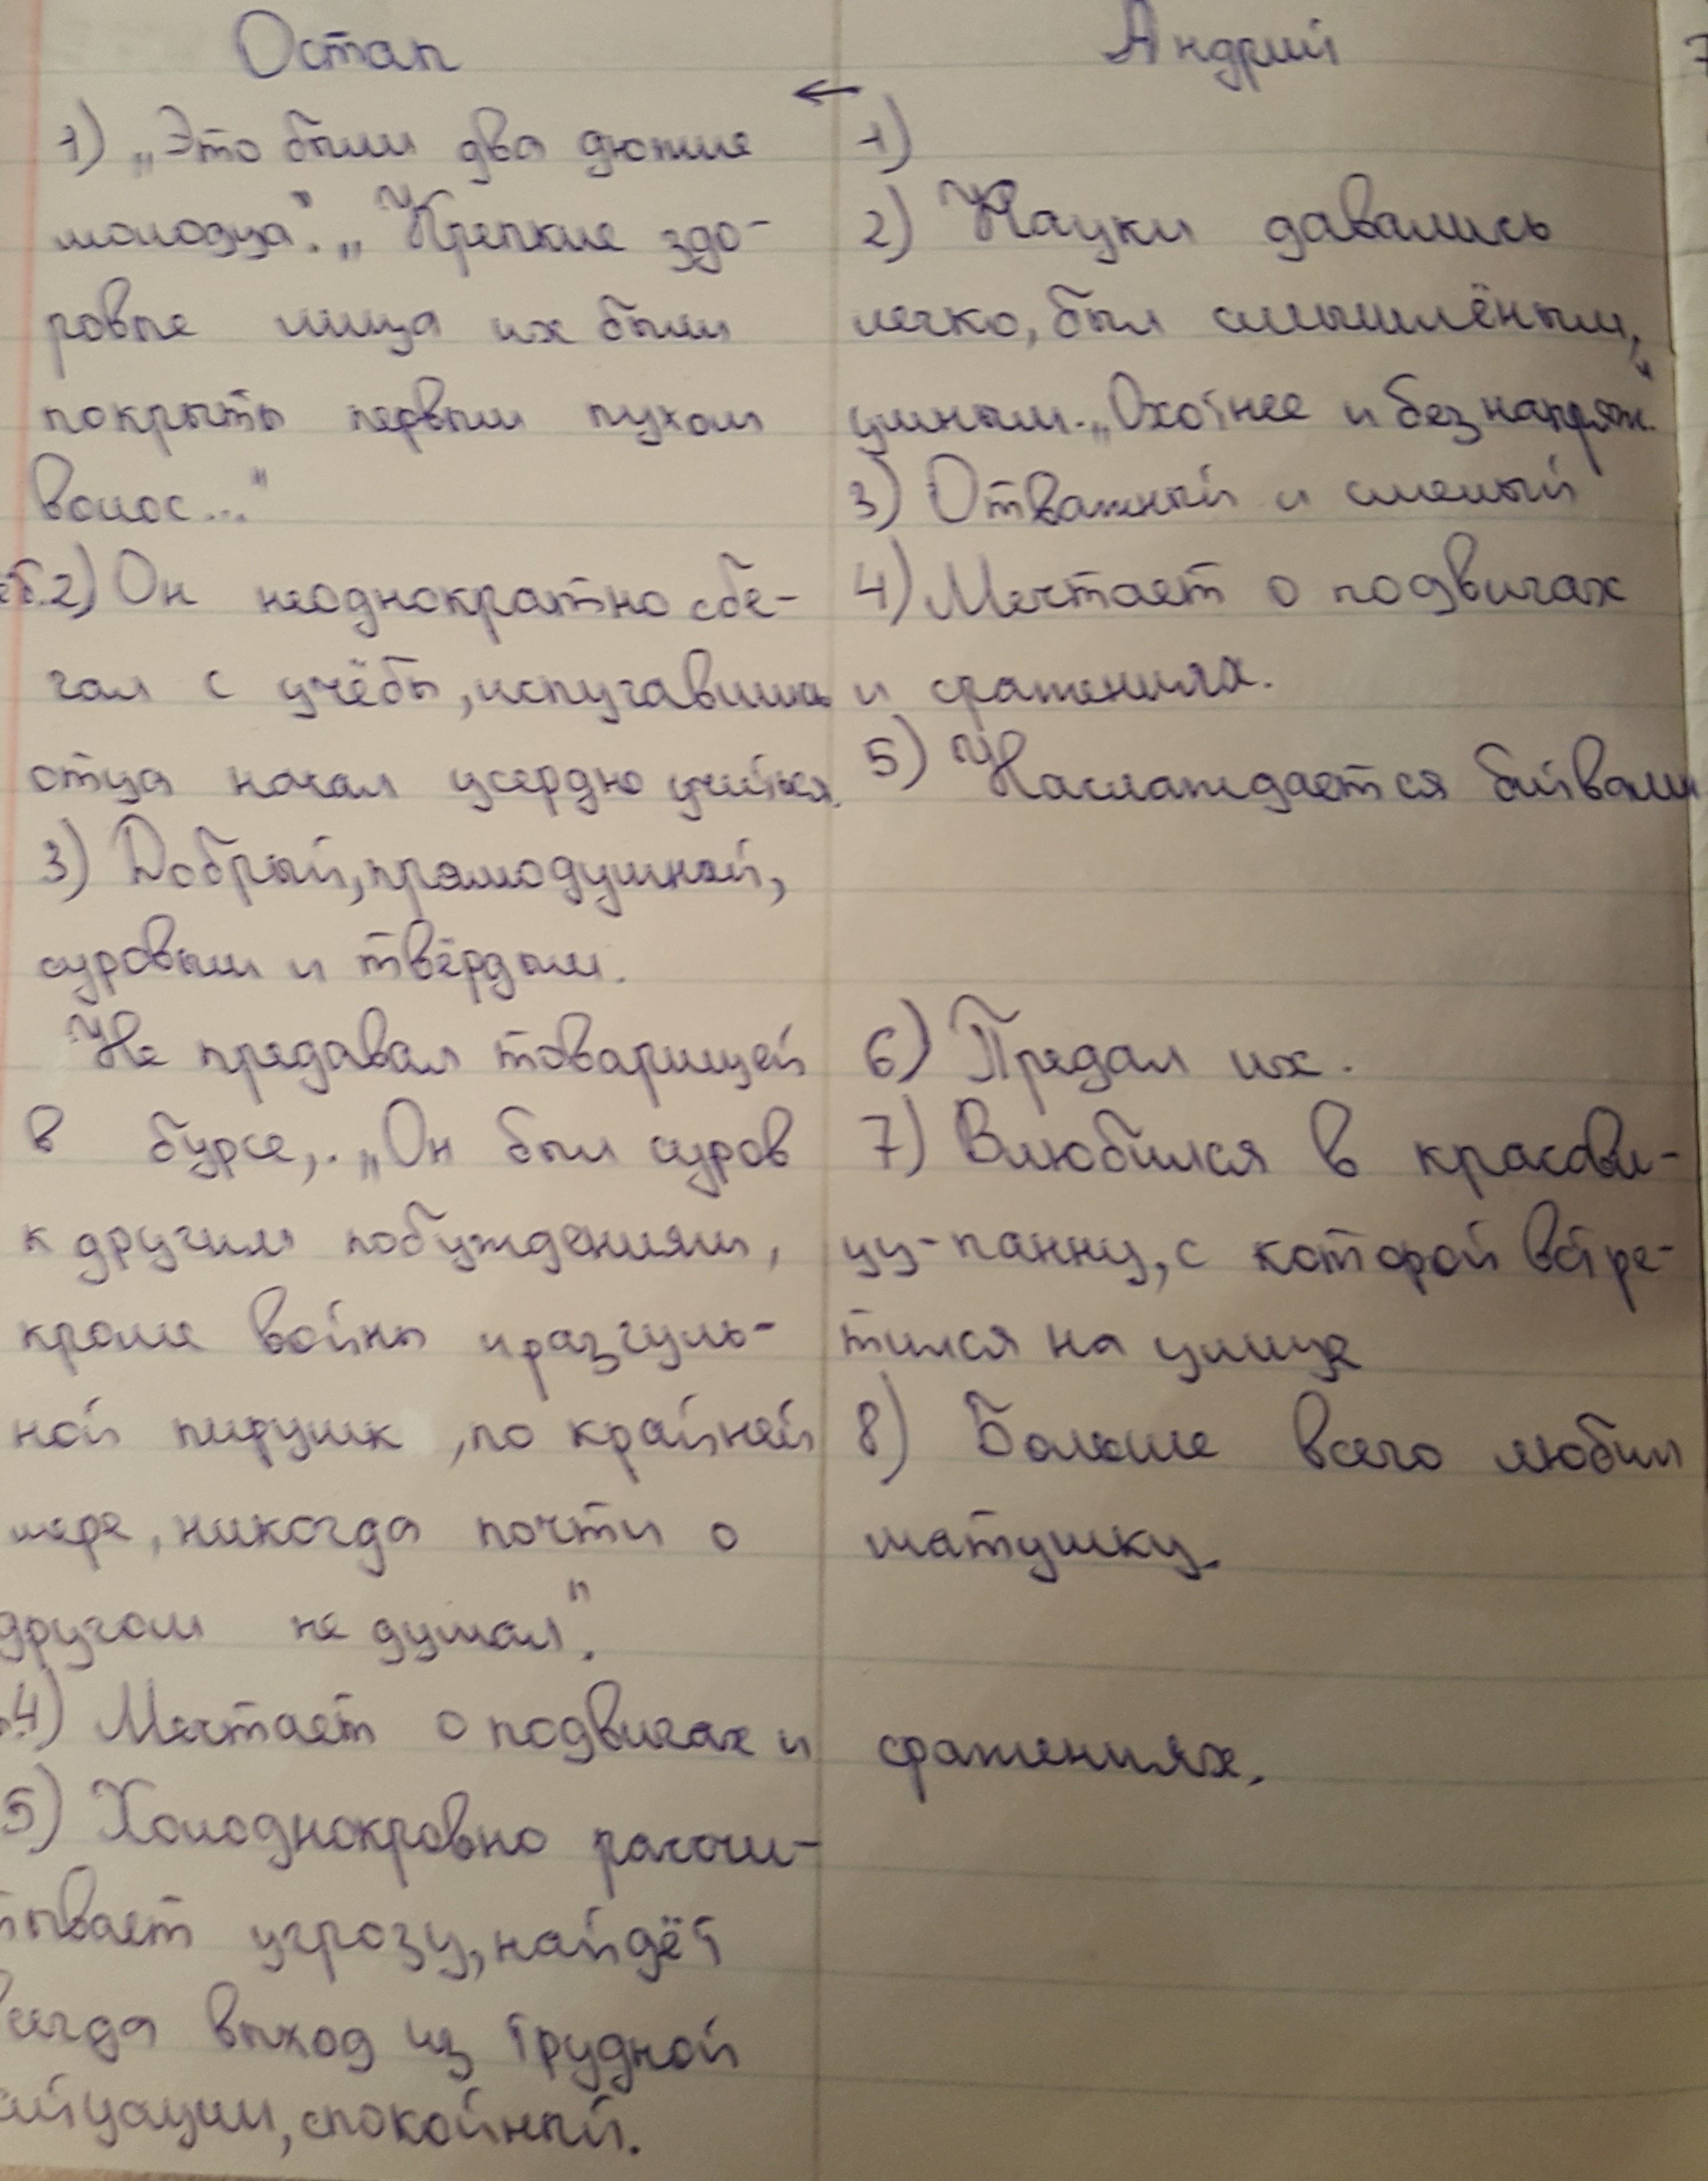 Остап
1) „Это были два дюжие
молодца". „Крепкие здо-
ровые лица их были
покрыты первым пухом
волос..."
2) Он неоднократно сбе-
гал с учёбы, испугавшись
отца начал усердно учиться.
3) Добрый, прямодушный,
суровым и твёрдым.
Не предавал товарищей
в бурсе,. „Он был суров
к другим побуждениям,
кроме войны и разгуль-
ной пирушк, по крайней
мере, никогда почти о
другом не думал".
4) Мечтает о подвигах и сражениях.
5) Хладнокровно рассчи-
тывает угрозу, найдёт
всегда выход из трудной
ситуации, спокойный.
Андрий
←
1)
2) Науки давались
легко, был смышлёным,
умным. „Охотнее и без напряж."
3) Отважный и смелый
4) Мечтает о подвигах
и сражениях.
5) Наслаждается битвами
6) Предал их.
7) Влюбился в красави-
цу-панну, с которой встре-
тился на улице
8) Больше всего любил
матушку.